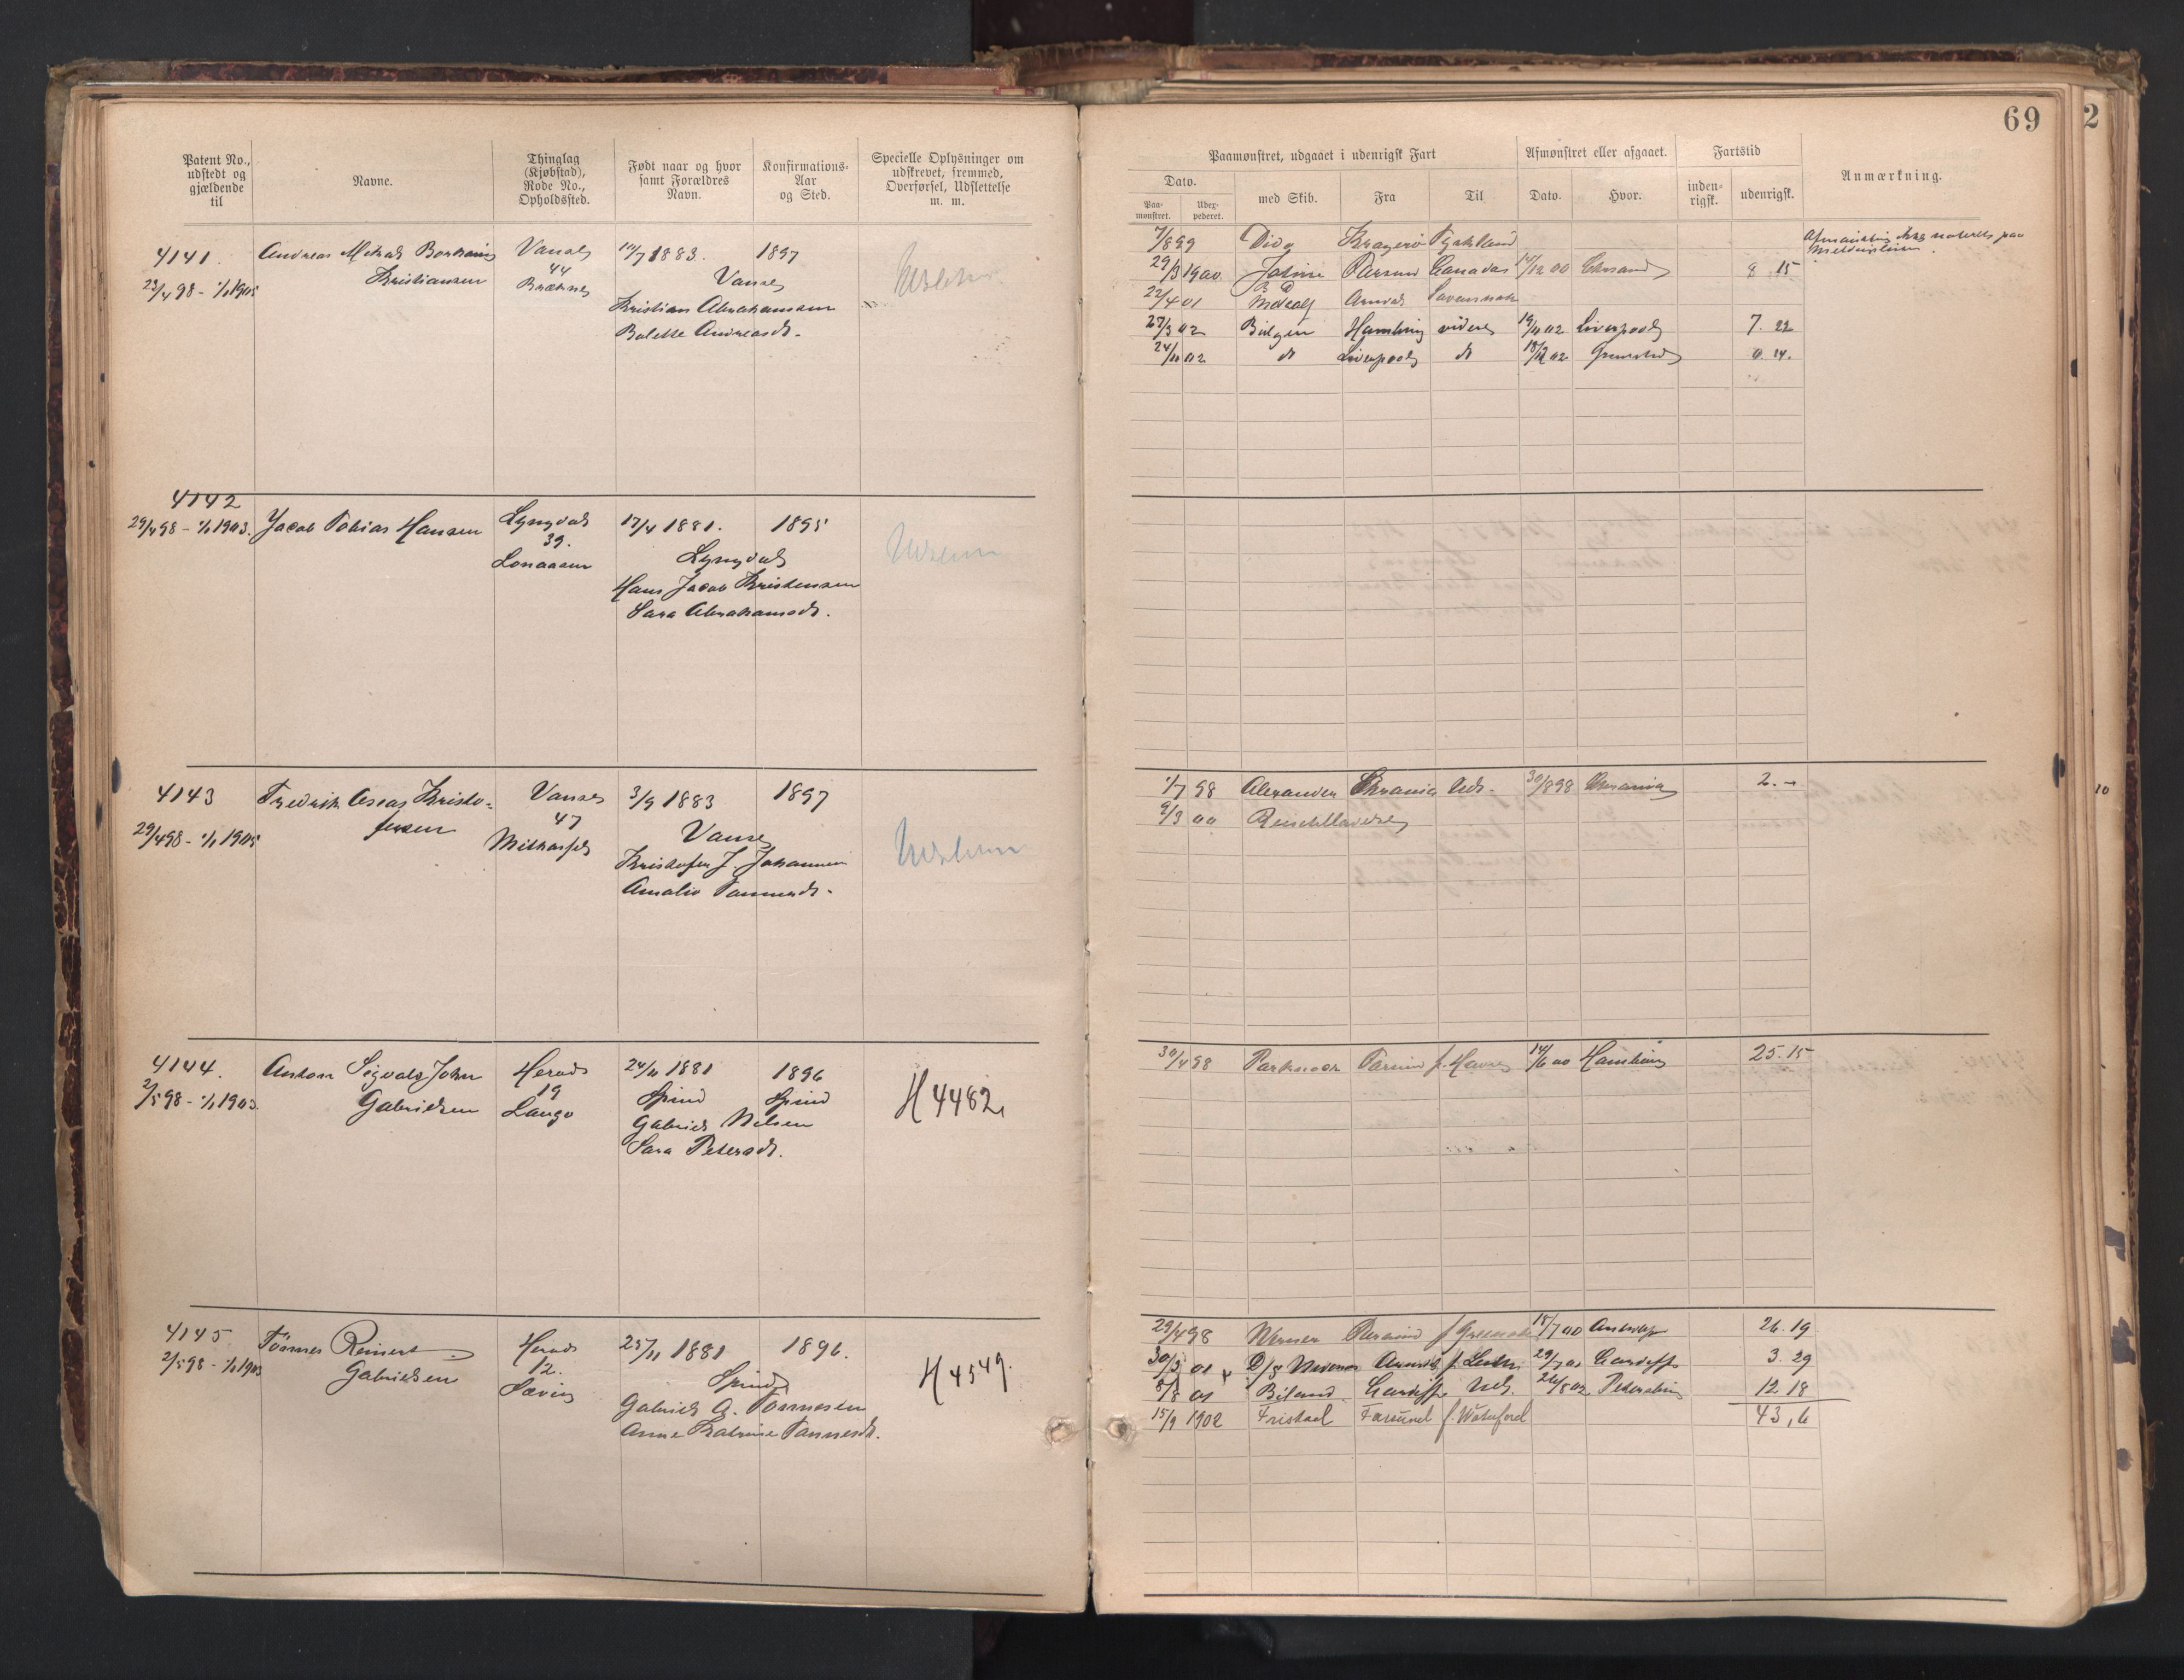 69
2
Patent No., udstedt og gjældende til
Navne.
Thinglag (Kjøbstad), Rode No., Opholdssted.
Født naar og hvor samt Forældres Navn.
Konfirmations-Aar og Sted.
Specielle Oplysninger om udskrevet, fremmed, Overførsel, Udslettelse m. m.
Paamønstret, udgaaet i udenrigsk Fart
Afmønstret eller afgaaet.
Fartstid
Anmærkning.
Dato.
med Skib.
Fra
Til
Dato.
Hvor.
inden-rigsk.
udenrigsk.
Paa-mønstret.
Udex-pederet.
4141.
23/4 98 - 1/1 1905
Andreas
Kristiansen
Vanse
44
10/7 1883.
1897
Vanse
Kristian Abrahamsen
Bolette Andreasdt.
7/8 99 Diva Kragerö Tyskland
29/3 1900 Farsund Canada 14/12 00 Chrsand 8 15
22/4 01 Arendal Savannah
27/3 02 Bölgen Hamburg videre 19/11 02 Liverpool 7. 22
24/11 02 do Liverpool do 18/12 02 Grimstad 0 24.
4142
29/4 98 - 1/1 1903.
Jacob Tobias Hansen
Lyngdal
39.
Lonaasen
17/4 1881.
1895
Lyngdal
Hans Jacob Kristensen
Sara Abrahamsdt.
4143
29/4 98 - 1/1 1905
Fredrik Aseas Kristo-
fersen
Vanse
47
3/9 1883
1897
Vanse
Kristofer J. Johannesen
Amalie Tønnesdt.
1/7 98 Alexander Chrania Udl. 30/8 98 Chrania 2. -
9/3 00
4144.
2/5 98 - 1/1 1903
Anton Segvald John
Gabrielsen
Herad
19
Lange
24/11 1881
1896
Spind
Spind
Gabriel Nilsen
Sara Petersdt.
H 4482
30/4 98 Parknook Farsund f. Havre 14/6 00 Hamburg 25. 15
4145
2/5 98 - 1/1 1903
Tönnes Reinert
Gabrielsen
Herad
12.
Sævig
25/11 1881
1896.
Spind
Gabriel A. Tönnesen
Anne Katrine Tönnesdt.
H 4549.
29/4 98 Werner Farsund f Greenock 18/7 00 Antwerp 26. 19
30/3 01 D/S Arendal f. Leith 29/7 01 Cardiff 3. 29
8/8 01 Biland Cardiff Udl. 26/8 02 Petersburg 12 18
15/9 1902 Fristad Farsund f. Waterford
43, 6